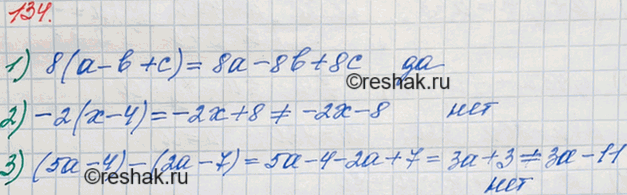 134.
1) 8(a-b+c)=8a-8b+8c да
©reshak.ru
2) -2(x-4)=-2x+8≠-2x-8 нет
3) (5a-4)-(2a-7)=5a-4-2a+7=3a+3≠3a-11
©reshak.ru нет